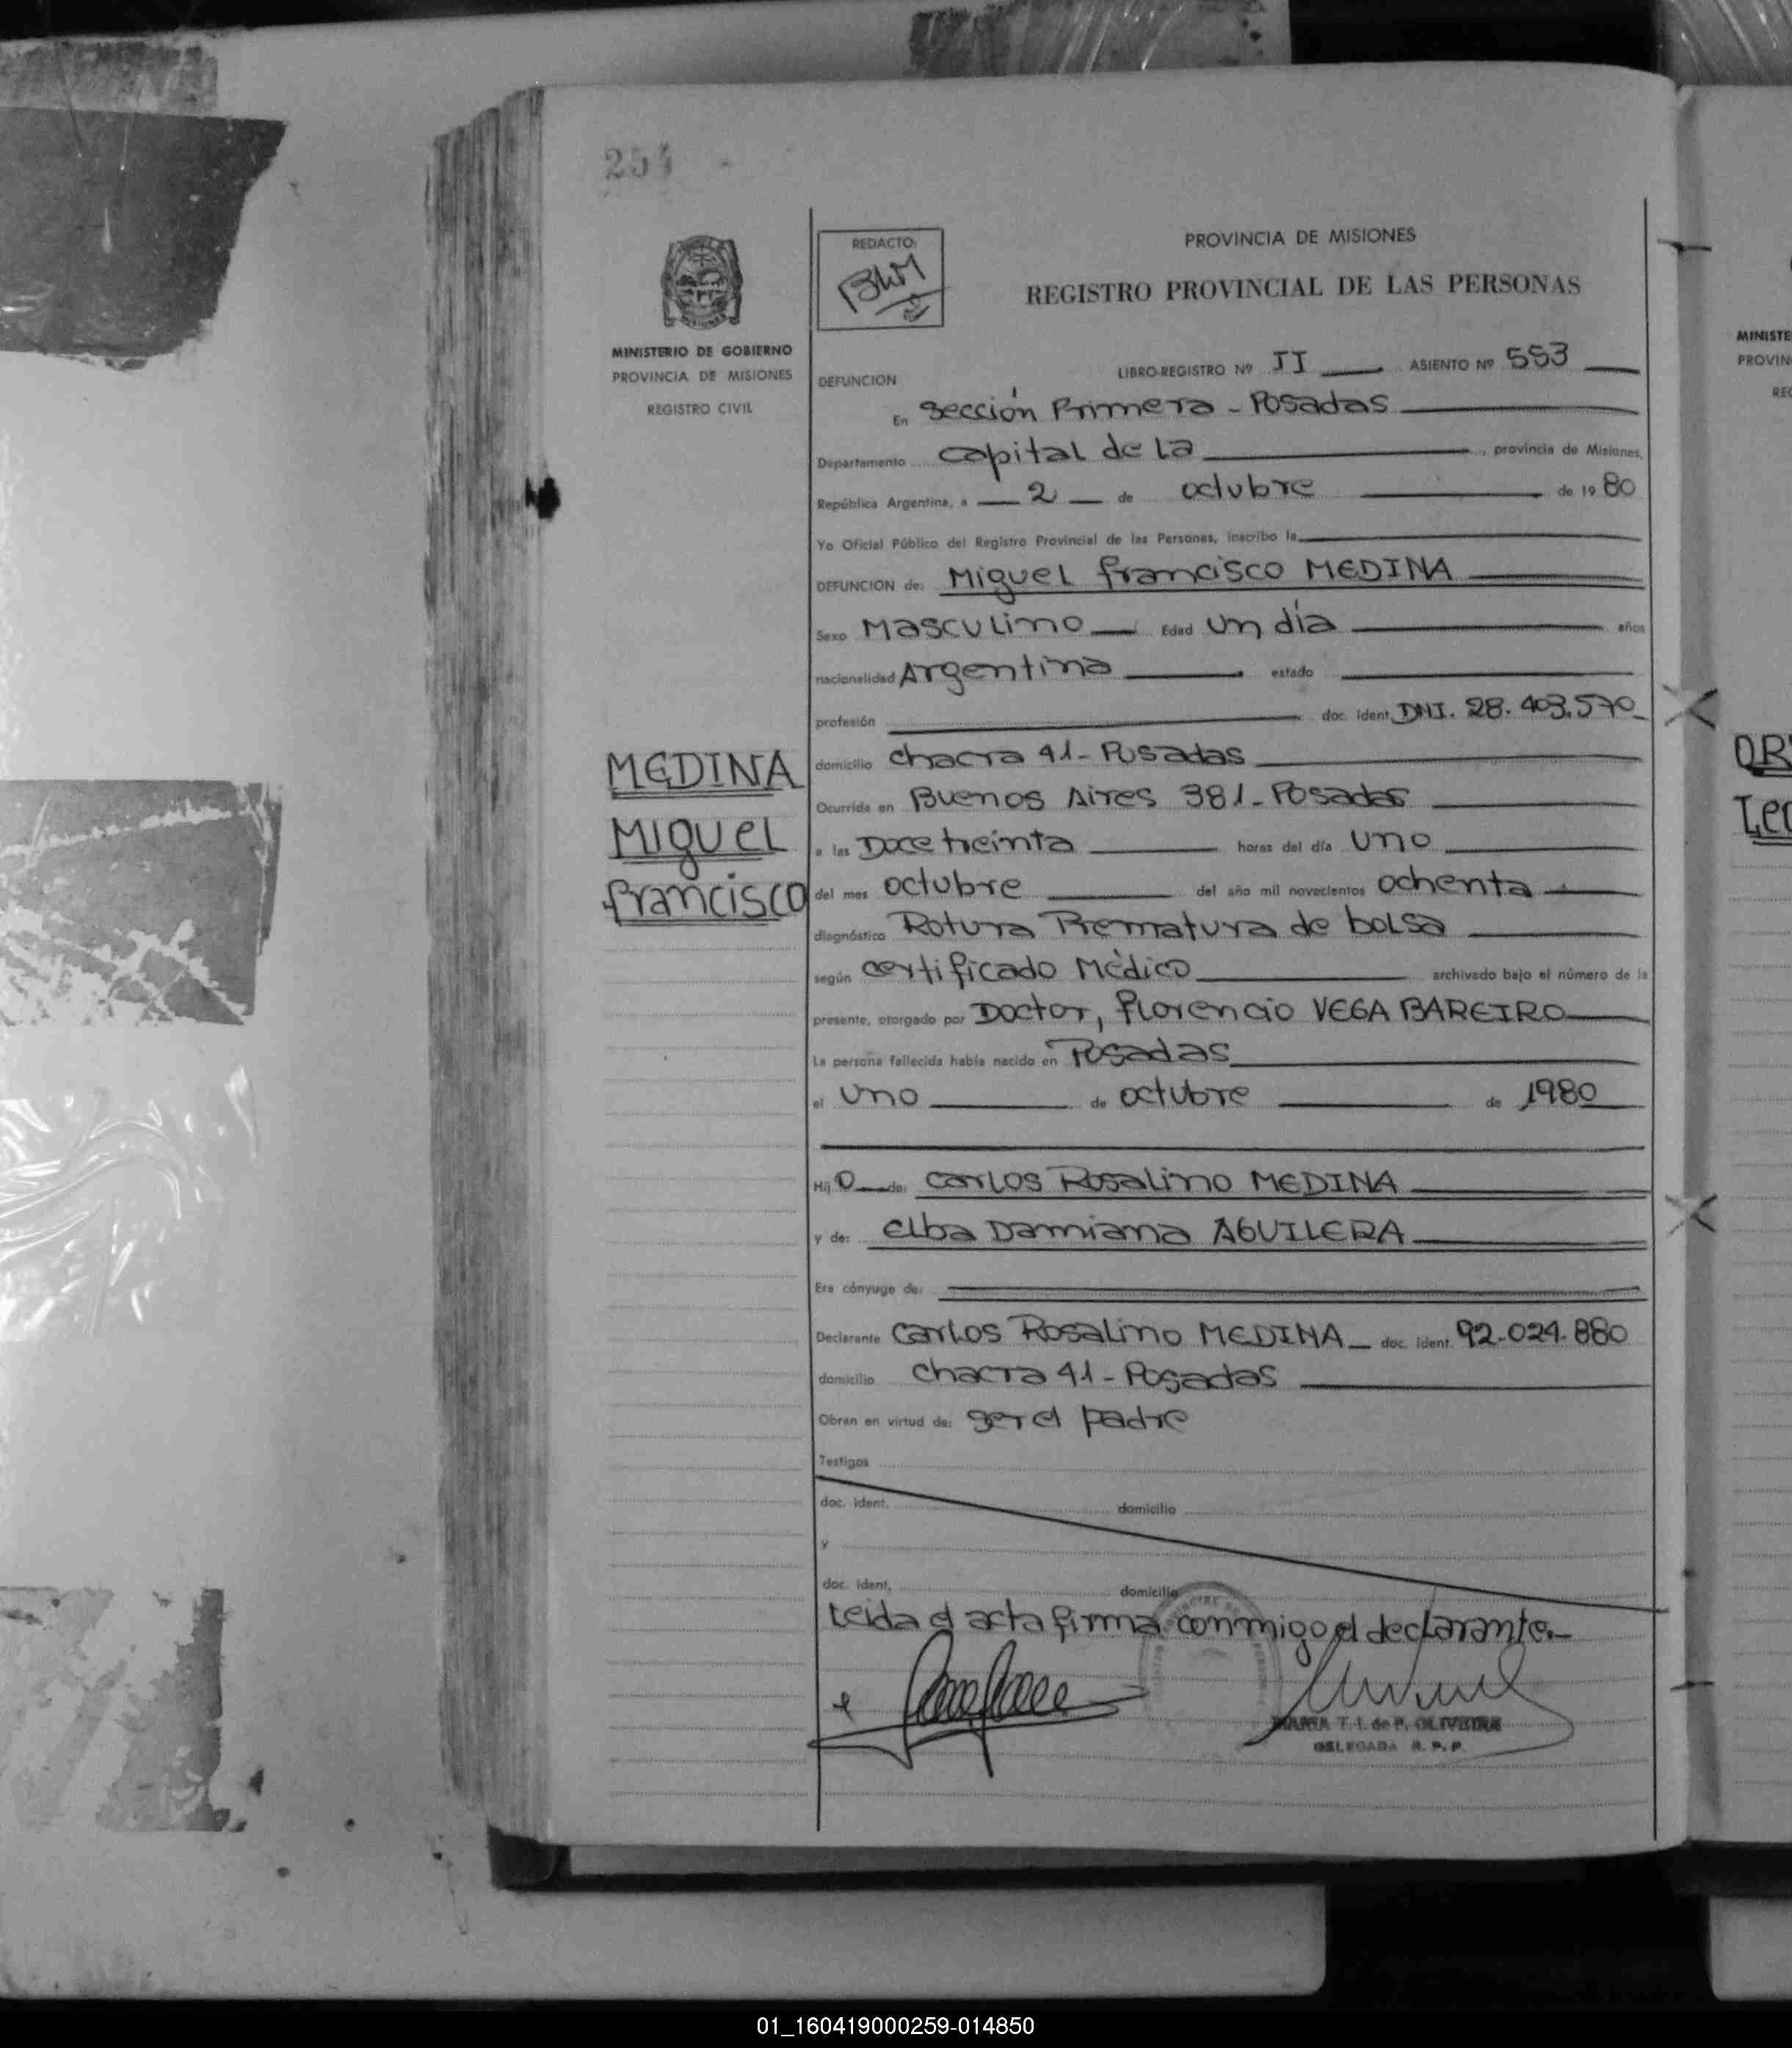 254
MINISTERIO DE GOBIERNO
PROVINCIA DE MISIONES
REGISTRO CIVIL
REDACTO:
PROVINCIA DE MISIONES
REGISTRO PROVINCIAL DE LAS PERSONAS
DEFUNCION LIBRO-REGISTRO Nº II ASIENTO Nº 553
En sección Primera - Posadas
Departamento capital de la , provincia de Misiones,
República Argentina, a 2 de octubre de 1980
Yo Oficial Público del Registro Provincial de las Personas, inscribo la
DEFUNCION de: Miguel francisco MEDINA
Sexo Masculino Edad un día años
nacionalidad Argentina estado
profesión doc. ident. DNI. 28.403.570
domicilio chacra 41 - Posadas
Ocurrida en Buenos Aires 381 - Posadas
a las Doce treinta horas del día uno
del mes octubre del año mil novecientos ochenta
diagnóstico Rotura Prematura de bolsa
según certificado Médico archivado bajo el número de la
presente, otorgado por Doctor, florencio VEGA BAREIRO
La persona fallecida había nacido en Posadas
el uno de octubre de 1980
Hij o de: carlos Rosalino MEDINA
y de: elba Damiana AGUILERA
Era cónyuge de:
Declarante carlos Rosalino MEDINA doc. ident. 92.024.880
domicilio chacra 41 - Posadas
Obran en virtud de: ser el padre
Testigos
doc. ident. domicilio
y
doc. ident. domicilio
Leida el acta firma conmigo el declarante.-
MARIA T. I. de P. OLIVEIRA
DELEGADA R. P. P.
MEDINA
Miguel
francisco
MINISTE
PROVIN
REG
OR
Leo
01_160419000259-014850